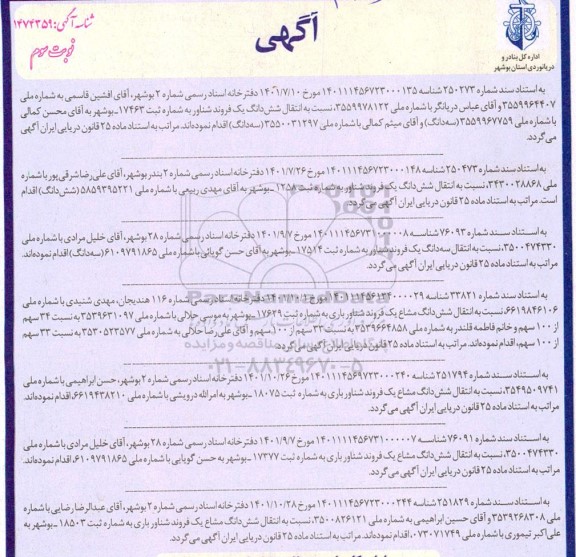 شناسه آگهی: ۱۴۷۴۳۵۹
نوبت سوم
آگهی
اداره کل بنادر و
دریانوردی استان بوشهر
به استناد سند شماره ۲۵۰۲۷۳ شناسه ۱۴۰۱۱۱۴۵۶۷۲۳۰۰۰۱۳۵ مورخ ۱۴۰۱/۷/۱۰ دفترخانه اسناد رسمی شماره ۲ بوشهر، آقای افشین قاسمی به شماره ملی
۳۵۵۹۹۶۴۴۰۷ و آقای عباس دریانگر با شماره ملی ۳۵۵۹۹۷۸۱۲۲، نسبت به انتقال شش‌دانگ یک فروند شناور به شماره ثبت ۱۷۴۶۳-بوشهر به آقای محسن کمالی
با شماره ملی ۳۵۵۹۹۶۷۷۵۹ (سه‌دانگ) و آقای میثم کمالی با شماره ملی ۳۵۵۰۰۳۱۲۹۷ (سه‌دانگ) اقدام نموده‌اند. مراتب به استناد ماده ۲۵ قانون دریایی ایران آگهی
می‌گردد.
به استناد سند شماره ۲۵۰۴۷۳ شناسه ۱۴۰۱۱۱۴۵۶۷۲۳۰۰۰۱۴۸ مورخ ۱۴۰۱/۷/۲۶ دفترخانه اسناد رسمی شماره ۲ بندر بوشهر، آقای علی‌رضا شرقی‌پور با شماره
ملی ۳۴۳۰۰۲۸۸۶۸، نسبت به انتقال شش‌دانگ یک فروند شناور به شماره ثبت ۱۲۵۸-بوشهر به آقای مهدی ربیعی با شماره ملی ۵۸۵۹۳۹۵۲۲۱ (شش‌دانگ) اقدام
است. مراتب به استناد ماده ۲۵ قانون دریایی ایران آگهی می‌گردد.
به استناد سند شماره ۷۶۰۹۳ شناسه ۱۴۰۱۱۱۴۵۶۷۳۱۰۰۰۰۰۸ مورخ ۱۴۰۱/۹/۷ دفترخانه اسناد رسمی شماره ۲۸ بوشهر، آقای خلیل مرادی با شماره ملی
۳۵۰۰۴۷۴۳۳۰، نسبت به انتقال سه‌دانگ یک فروند شناور به شماره ثبت ۱۷۵۱۴-بوشهر به آقای حسن گویائی با شماره ملی ۶۱۰۹۷۹۱۸۶۵ (سه‌دانگ) اقدام نموده‌اند.
مراتب به استناد ماده ۲۵ قانون دریایی ایران آگهی می‌گردد.
به استناد سند شماره ۳۳۸۲۱ شناسه ۱۴۰۱۱۱۴۵۶۱۳۰۰۰۰۲۹ مورخ دفترخانه اسناد رسمی شماره ۱۱۶ هندیجان، مهدی شنیدی با شماره ملی
۶۶۱۹۸۴۶۱۰۶ نسبت به انتقال شش‌دانگ مشاع یک فروند شناور باری به شماره ثبت ۱۷۶۲۹-بوشهر به موسی جلالی با شماره ملی ۳۵۳۹۶۳۱۰۹۷ به نسبت ۳۴ سهم
از ۱۰۰ سهم و خانم فاطمه قلندر به شماره ملی ۳۵۳۹۶۶۴۸۵۸ به نسبت ۳۳ سهم از ۱۰۰ سهم و آقای علی‌رضا جلالی به شماره ملی ۳۵۳۰۵۲۳۵۷۷ به نسبت ۳۳ سهم
از ۱۰۰ سهم، اقدام نموده‌اند. مراتب به استناد ماده ۲۵ قانون دریایی ایران آگهی می‌گردد.
به استناد سند شماره ۲۵۱۷۹۴ شناسه ۱۴۰۱۱۱۴۵۶۹۷۲۳۰۰۰۲۴۰ مورخ ۱۴۰۱/۱۰/۲۶ دفترخانه اسناد رسمی شماره ۲ بوشهر، حسن ابراهیمی به شماره ملی
۳۵۴۹۵۰۹۷۴۱، نسبت به انتقال شش‌دانگ مشاع یک فروند شناور باری به شماره ثبت ۱۸۰۷۵-بوشهر به امرالله درویشی با شماره ملی ۶۶۱۹۴۳۸۲۱۰، اقدام نموده‌اند.
مراتب به استناد ماده ۲۵ قانون دریایی ایران آگهی می‌گردد.
به استناد سند شماره ۷۶۰۹۱ شناسه ۱۴۰۱۱۱۴۵۶۷۳۱۰۰۰۰۰۷ مورخ ۱۴۰۱/۹/۷ دفترخانه اسناد رسمی شماره ۲۸ بوشهر، آقای خلیل مرادی با شماره ملی
۳۵۰۰۴۷۴۳۳۰، نسبت به انتقال شش‌دانگ مشاع یک فروند شناور باری به شماره ثبت ۱۷۳۷۷-بوشهر به حسن گویایی با شماره ملی ۶۱۰۹۷۹۱۸۶۵، اقدام نموده‌اند.
مراتب به استناد ماده ۲۵ قانون دریایی ایران آگهی می‌گردد.
به استناد سند شماره ۲۵۱۸۲۹ شناسه ۱۴۰۱۱۱۴۵۶۷۲۳۰۰۰۲۴۴ مورخ ۱۴۰۱/۱۰/۲۸ دفترخانه اسناد رسمی شماره ۲ بوشهر، آقای عبدالرضا رضایی با شماره
ملی ۳۵۳۹۲۶۸۳۰۸ و آقای حسین ابراهیمی به شماره ملی ۳۵۰۰۸۲۶۱۲۱، نسبت به انتقال شش‌دانگ مشاع یک فروند شناور باری به شماره ثبت ۱۸۵۰۳-بوشهر به
علی‌اکبر تیموری با شماره ملی ۰۷۳۰۰۷۱۷۴۹، اقدام نموده‌اند. مراتب به استناد ماده ۲۵ قانون دریایی ایران آگهی می‌گردد.
۰۲۱-۸۸۳۴۹۶۷۰-۵